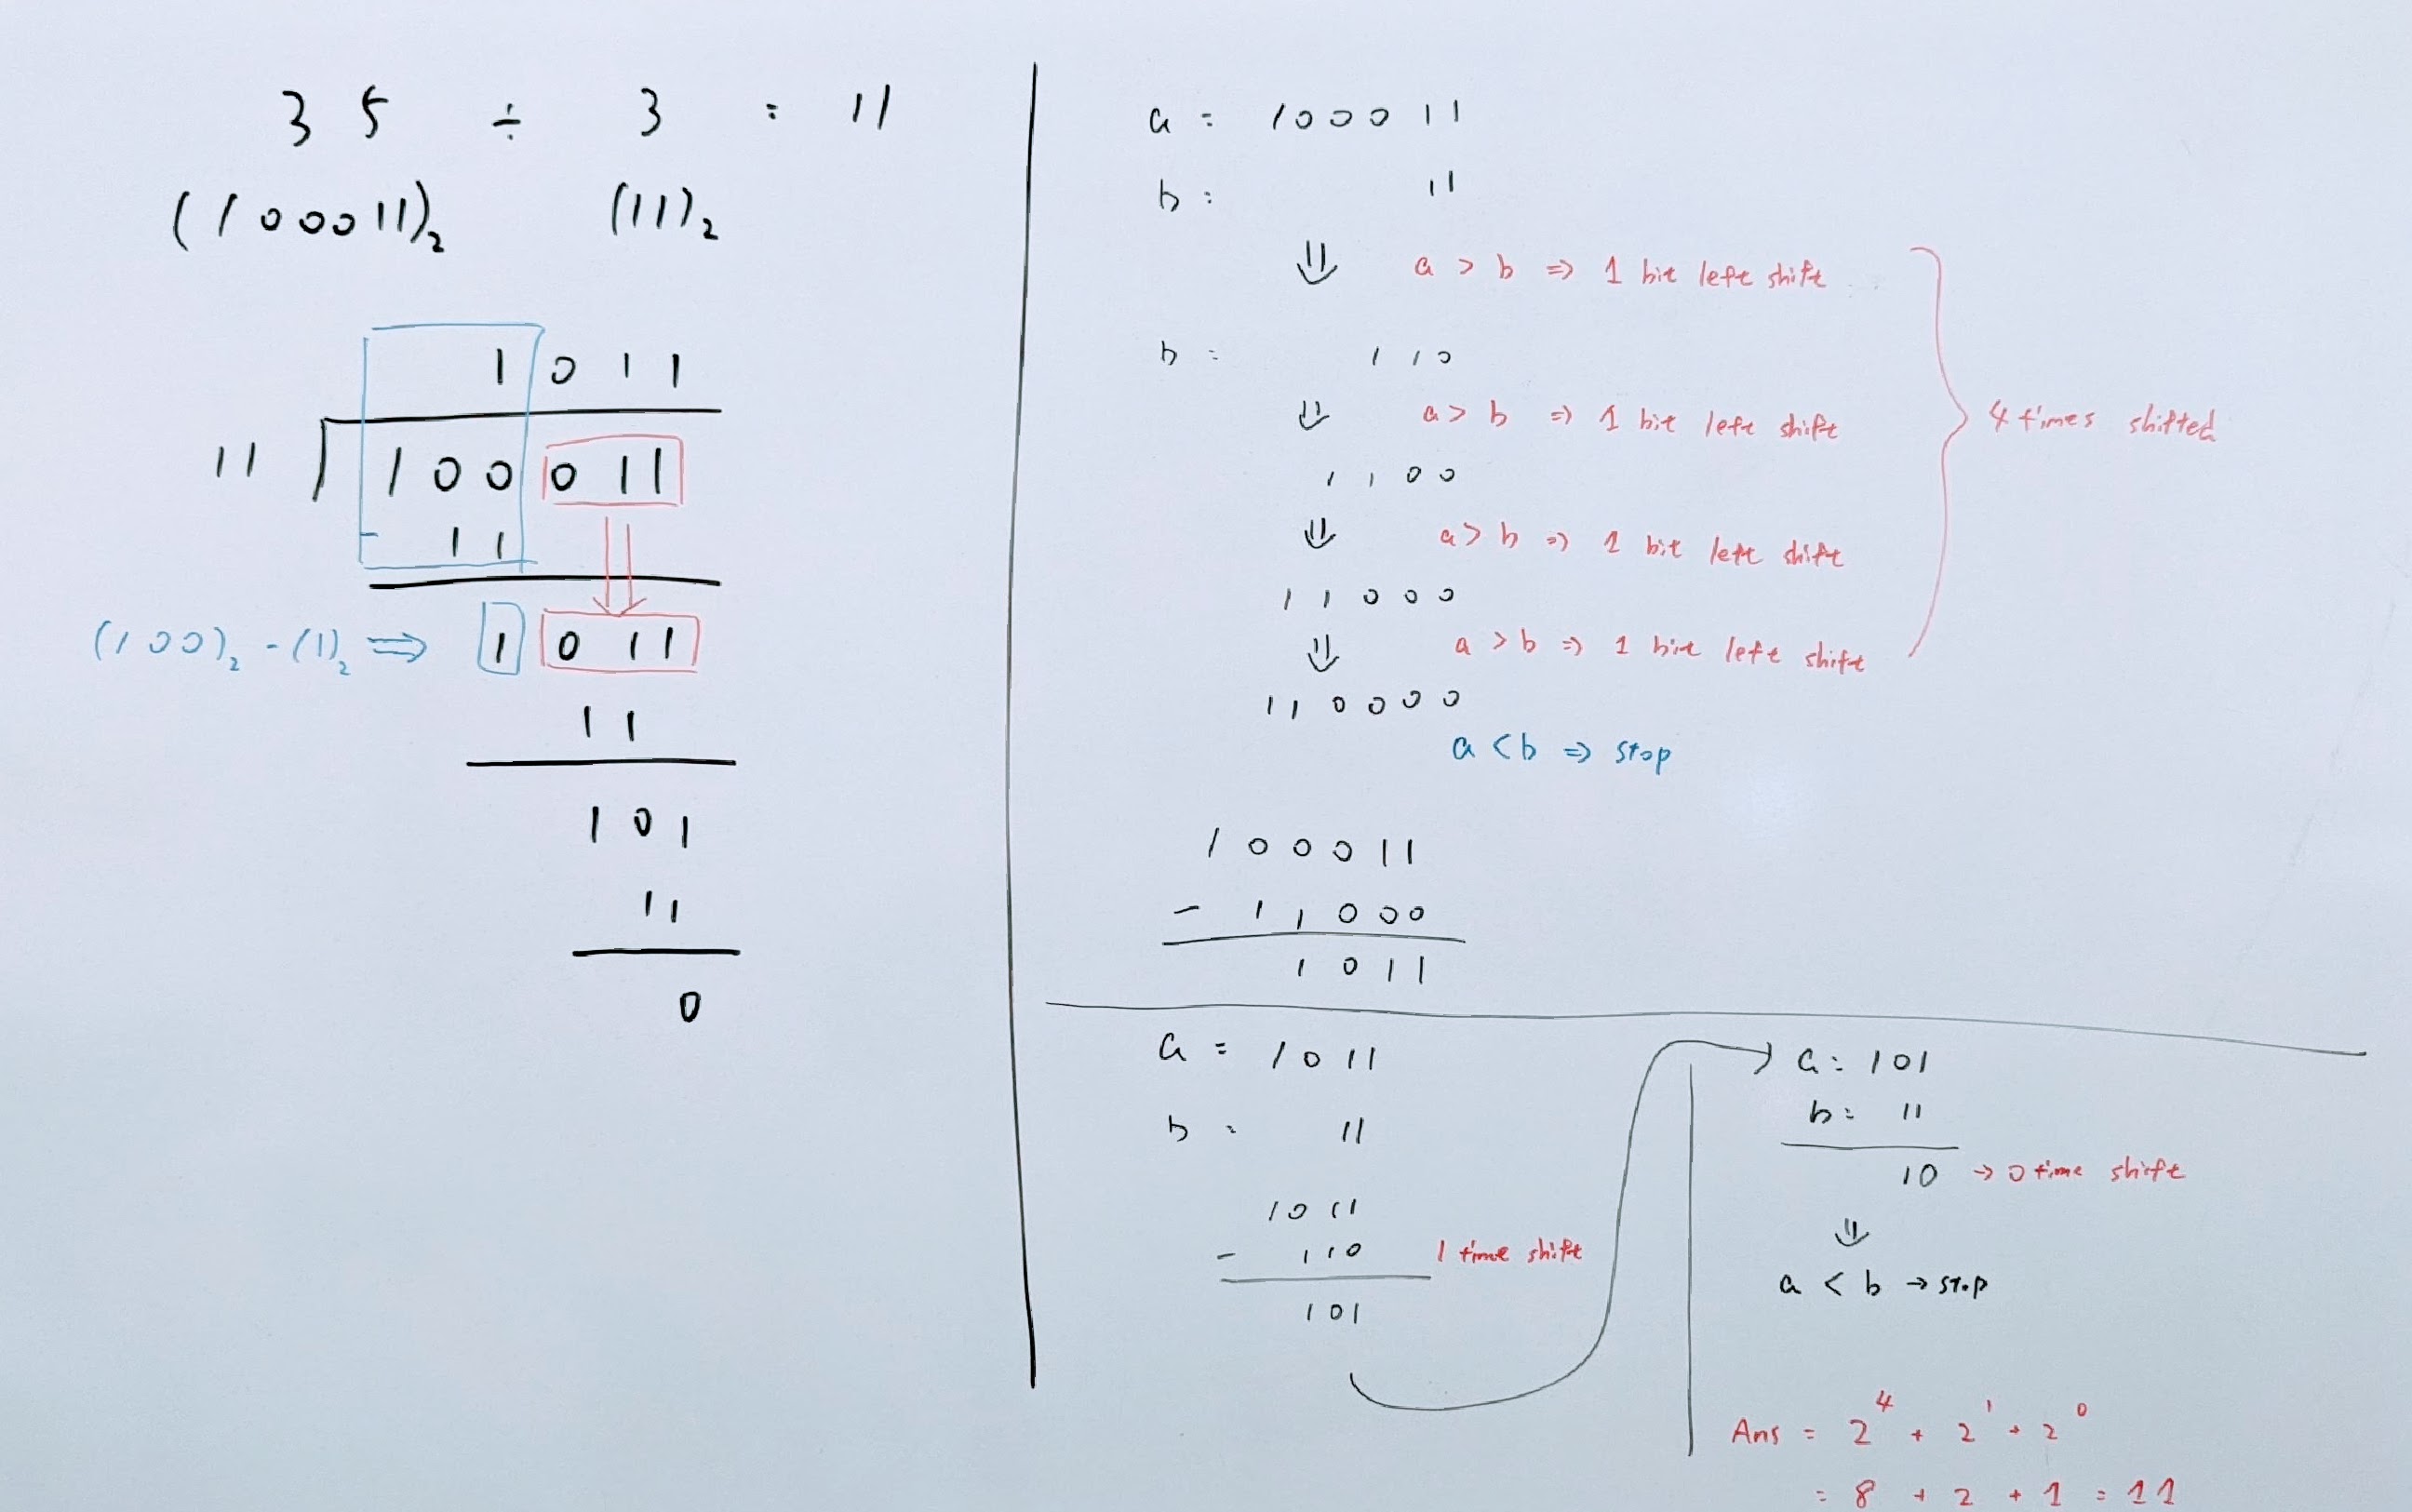 35 ÷ 3 = 11
(100011)₂ (11)₂
1011
11 100011
- 11
(100)₂ - (1)₂ ⇒ 1011
11
101
11
0
a = 100011
b = 11
⇓ a > b ⇒ 1 bit left shift
b = 110
⇓ a > b ⇒ 1 bit left shift
1100
⇓ a > b ⇒ 1 bit left shift
11000
⇓ a > b ⇒ 1 bit left shift
4 times shifted
110000
a < b ⇒ stop
100011
- 11000
1011
a = 1011
b = 11
1011
- 110 1 time shift
101
a = 101
b = 11
10 → 0 time shift
⇓
a < b → stop
Ans = 2⁴ + 2¹ + 2⁰
= 8 + 2 + 1 = 11